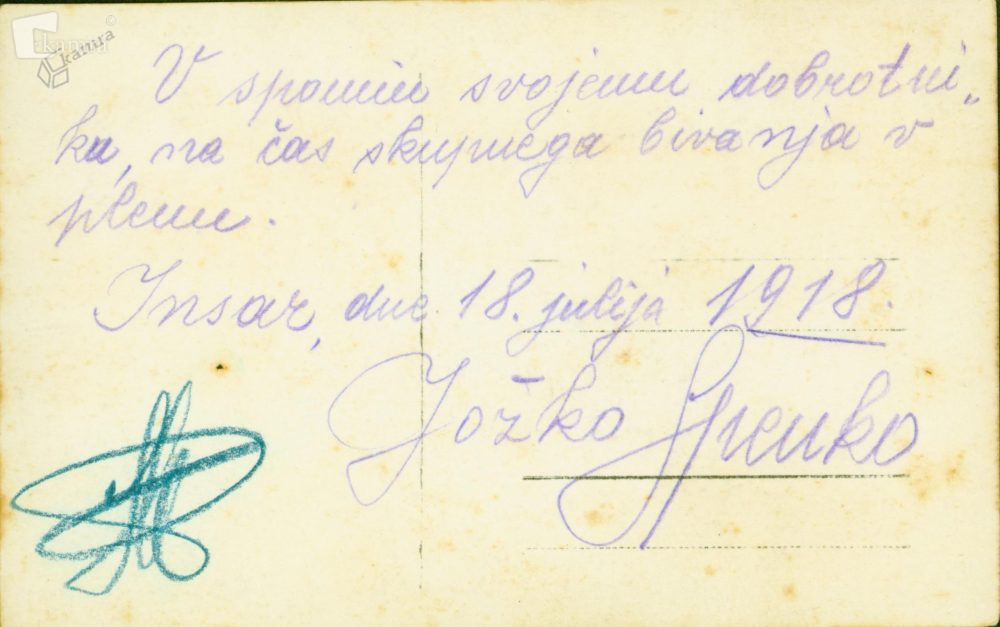 kamra
kamra
V spomin svojemu dobrotni„
ku, na čas skupnega bivanja v
plenu.
Insar, dne 18. julija 1918.
Jožko Špenko